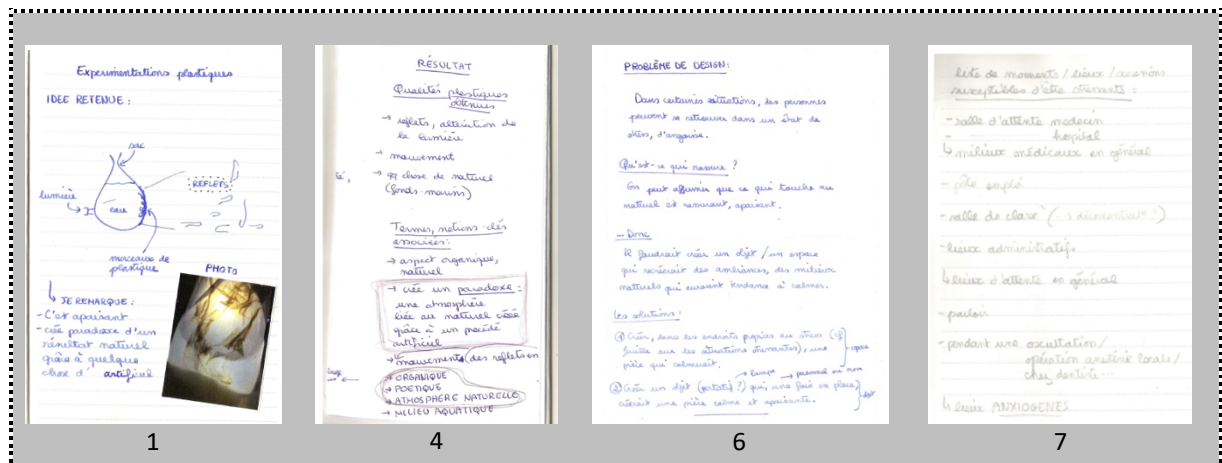 Expérimentations plastiques
IDEE RETENUE :
sac
REFLETS
lumière
eau
morceaux de
plastique
PHOTO
JE REMARQUE :
- C'est apaisant
- crée paradoxe d'un
résultat naturel
grâce à quelque
chose d' artificiel
1
RÉSULTAT
Qualités plastiques
obtenues
→ reflets, altération de
la lumière
→ mouvement
→ qq chose de naturel
(fonds-marins)
Termes, notions-clés
associées :
→ aspect organique,
naturel
→ crée un paradoxe :
une atmosphère
liée au naturel créé
grâce à un procédé
artificiel
→ mouvements (des reflets en
→ ORGANIQUE
→ POETIQUE
→ ATMOSPHÈRE NATURELLE
→ MILIEU AQUATIQUE
4
PROBLÈME DE DESIGN :
Dans certaines situations, des personnes
peuvent se retrouver dans un état de
stress, d'angoisse.
Qu'est-ce qui rassure ?
On peut affirmer que ce qui touche au
naturel est rassurant, apaisant.
... Donc
Il faudrait créer un objet / un espace
qui recréerait des ambiances, des milieux
naturels qui auraient tendance à calmer.
Les solutions :
① Créer, dans les endroits propices au stress (cf
feuille sur les situations stressantes), une
pièce qui calmerait.
→ lampe → 
② Créer un objet (portatif ?) qui, une fois en place
créerait une pièce calme et apaisante.
objet
6
liste de moments / lieux /
susceptibles d'être stressants :
- salle d'attente medecin
hopital
↳ milieux médicaux en général
- pôle emploi
- salle de classe
- lieux administratifs
↳ lieux d'attente en général
- parloir
- pendant une auscultation /
opération anesthésie locale /
chez dentiste...
↳ lieux ANXIOGENES
7